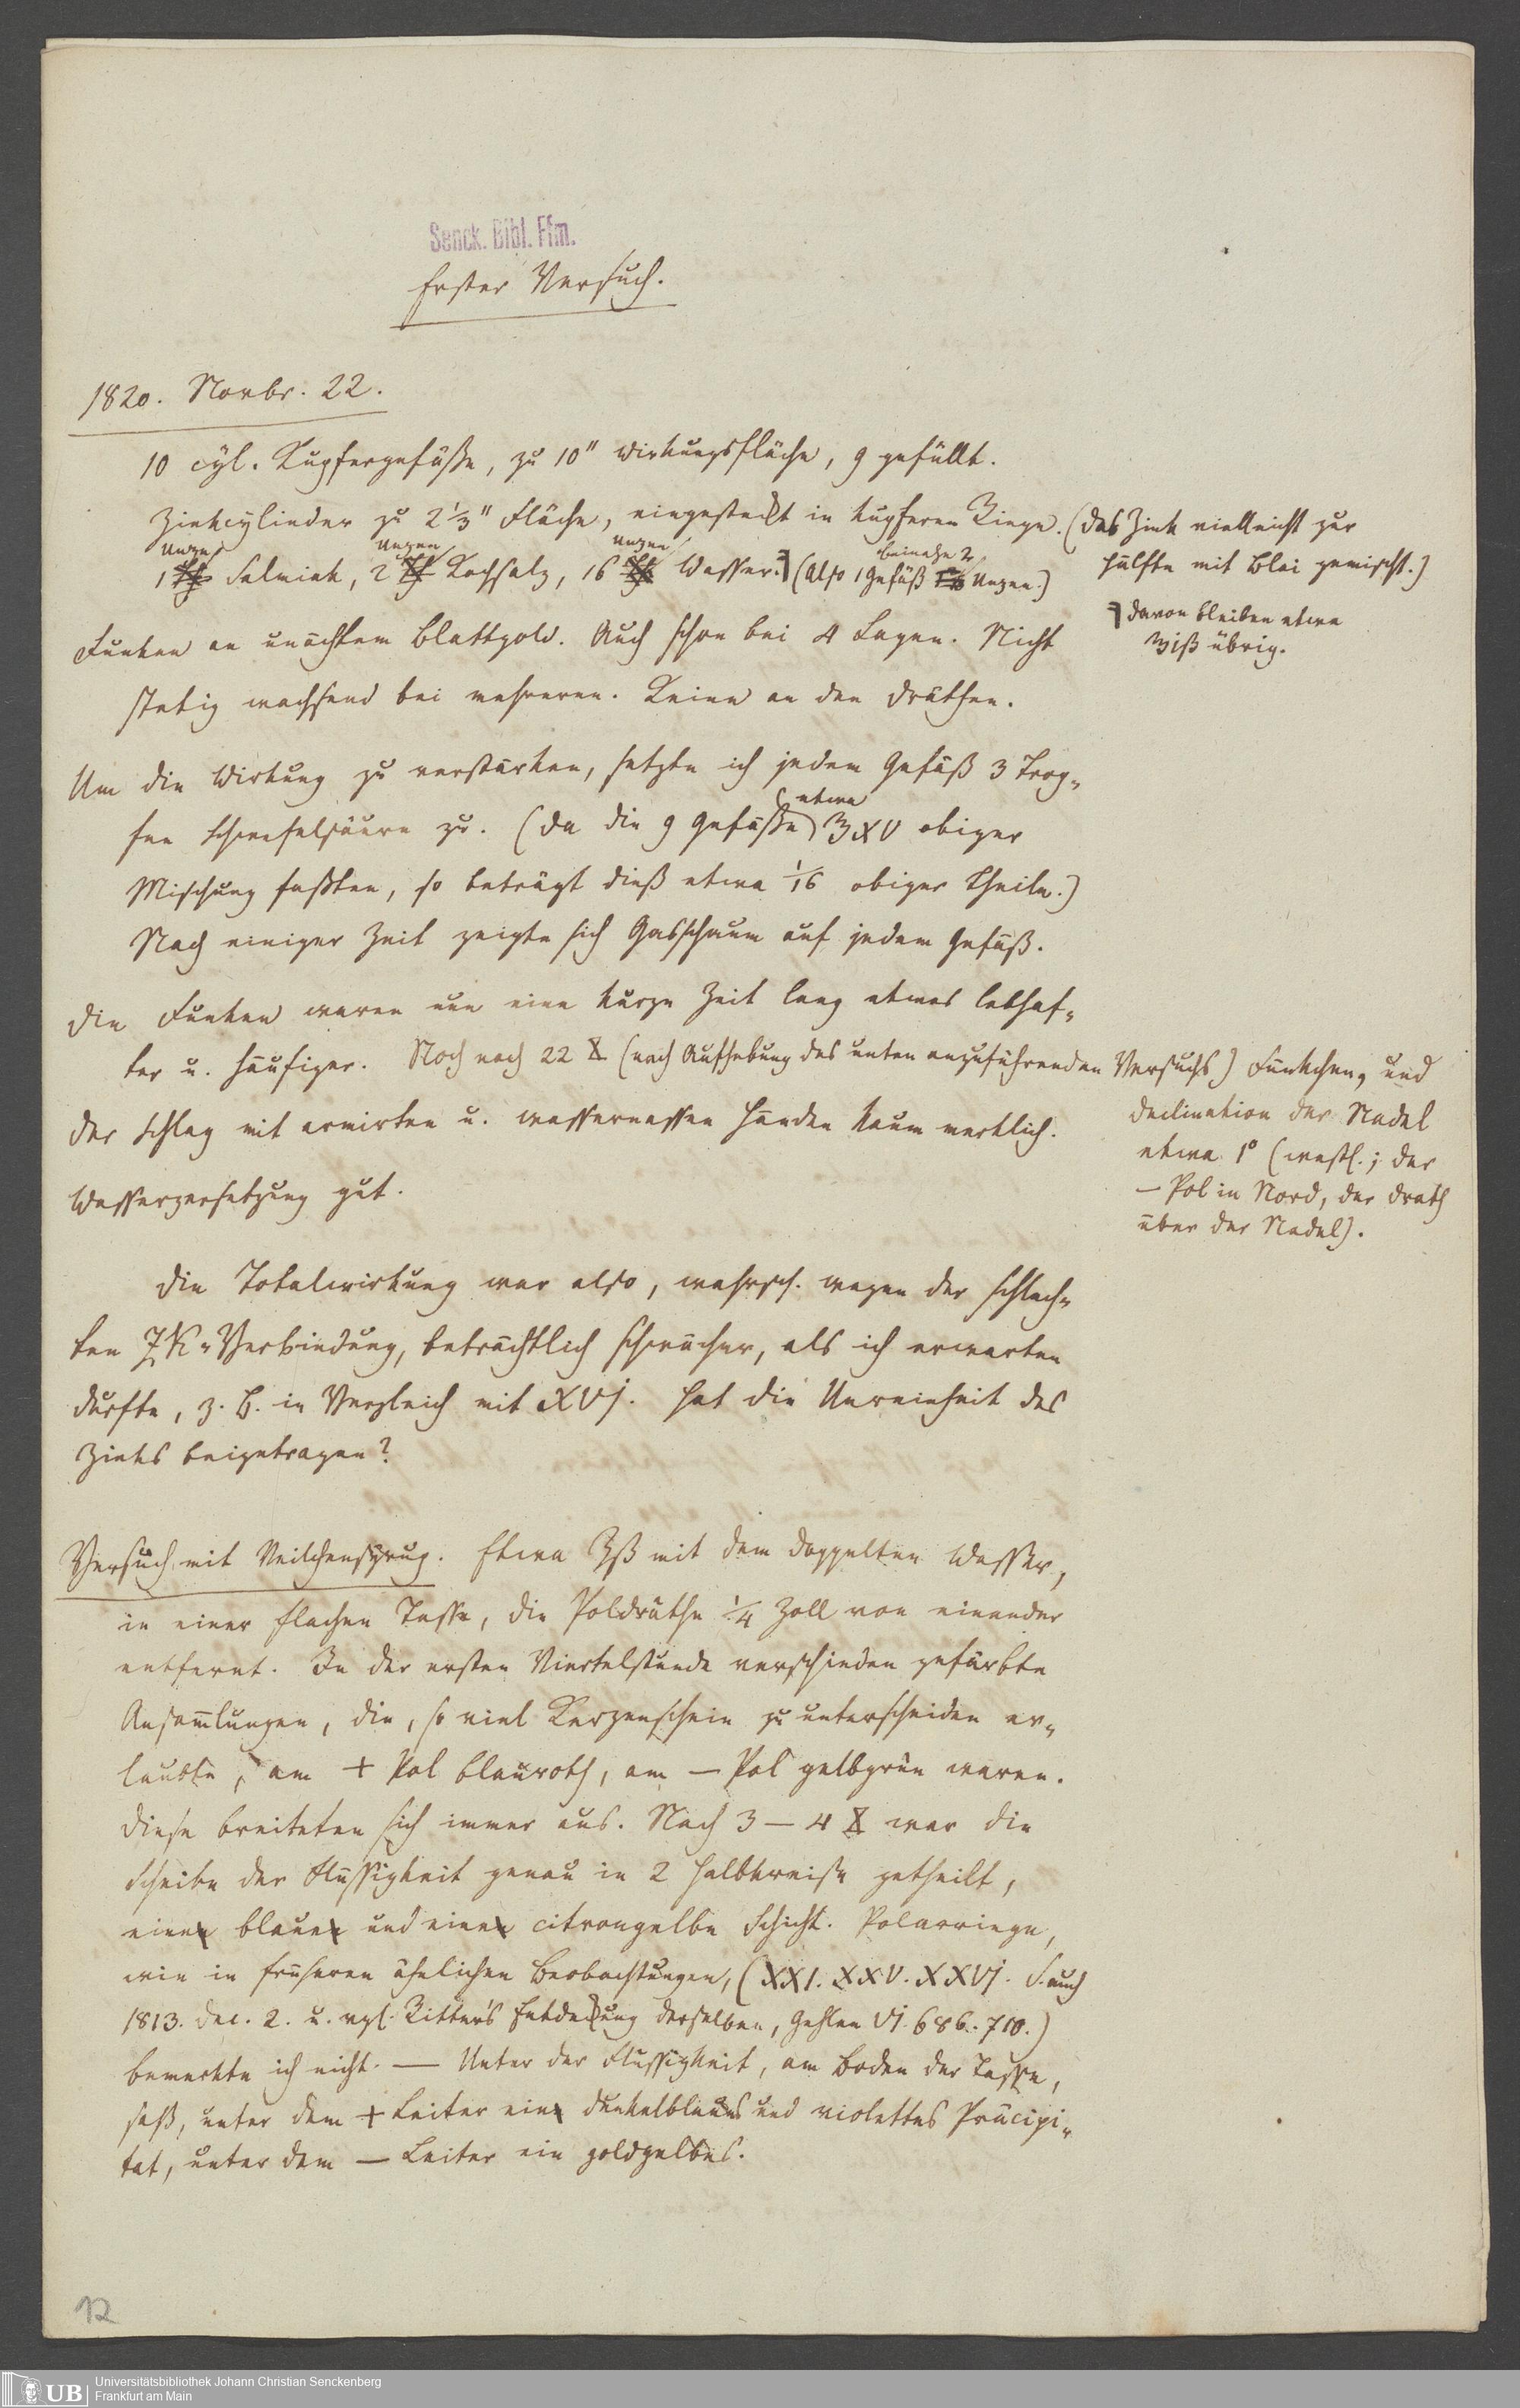 Senck. Bibl. Ffm.
Erster Versuch.
1820. Novbr. 22.
10 cyl. Kupfergefäße, zu 10" Wirkungsfläche, 9 gefüllt.
Zinkcylinder zu 2⅓" Fläche, eingesteckt in kupferne Ringe. (Das Zink vielleicht zur
Hälfte mit Blei gemischt.)
Unze Unzen Unzen beinahe 2
1 Salmiak, 2 Kochsalz, 16 Wasser. (Also 1 Gefäß Unzen.)
Davon bleiben etwa
℥iß übrig.
Funken an unächtem Blattgold. Auch schon bei 4 Lagen. Nicht
stetig wachsend bei mehreren. Keine an den Dräthen.
Um die Wirkung zu verstärken, setzte ich jedem Gefäß 3 Trop-
etwa
fen Schwefelsäure zu. (Da die 9 Gefäße ℥XV obiger
Mischung faßten, so beträgt dieß etwa 1/16 obiger Theile.)
Nach einiger Zeit zeigte sich Gasschaum auf jedem Gefäß.
Die Funken waren nun eine kurze Zeit lang etwas lebhaf-
ter u. häufiger. Noch nach 22 X (nach Aufhebung des unten anzuführenden Versuchs) Fünkchen, und
Declination der Nadel
etwa 1° (westl.; der
– Pol in Nord, der Drath
über der Nadel).
Der Schlag mit armirten u. wassernassen Händen kaum merklich.
Wasserzersetzung gut.
Die Totalwirkung war also, wahrsch. wegen der schlech-
ten ZK-Verbindung, beträchtlich schwächer, als ich erwarten
durfte, z. B. in Vergleich mit XVj. Hat die Unreinheit des
Zinks beigetragen?
Versuch mit Veilchensyrup. Etwa ʒß mit dem doppelten Wasser,
in einer flachen Tasse, die Poldräthe ¼ Zoll von einander
entfernt. In der ersten Viertelstunde verschieden gefärbte
Ansam̄lungen, die, so viel Kerzenschein zu unterscheiden er-
laubte, am + Pol blauroth, am – Pol gelbgrün waren.
Diese breiteten sich immer aus. Nach 3 – 4 X war die
Scheibe der Flüssigkeit genau in 2 Halbkreise getheilt,
eine blaue und eine citrongelbe Schicht. Polarringe,
wie in früheren ähnlichen Beobachtungen, (XXI. XXV. XXVj. S. auch
1813. Dec. 2. u. vgl. Ritter's Entdeckung derselben, Gehlen Vj. 686. 710.)
bemerkte ich nicht. — Unter der Flüssigkeit, am Boden der Tasse,
saß, unter dem + Leiter ein dunkelblaues und violettes Präcipi-
tat, unter dem – Leiter ein goldgelbes.
12
UB
Universitätsbibliothek Johann Christian Senckenberg
Frankfurt am Main